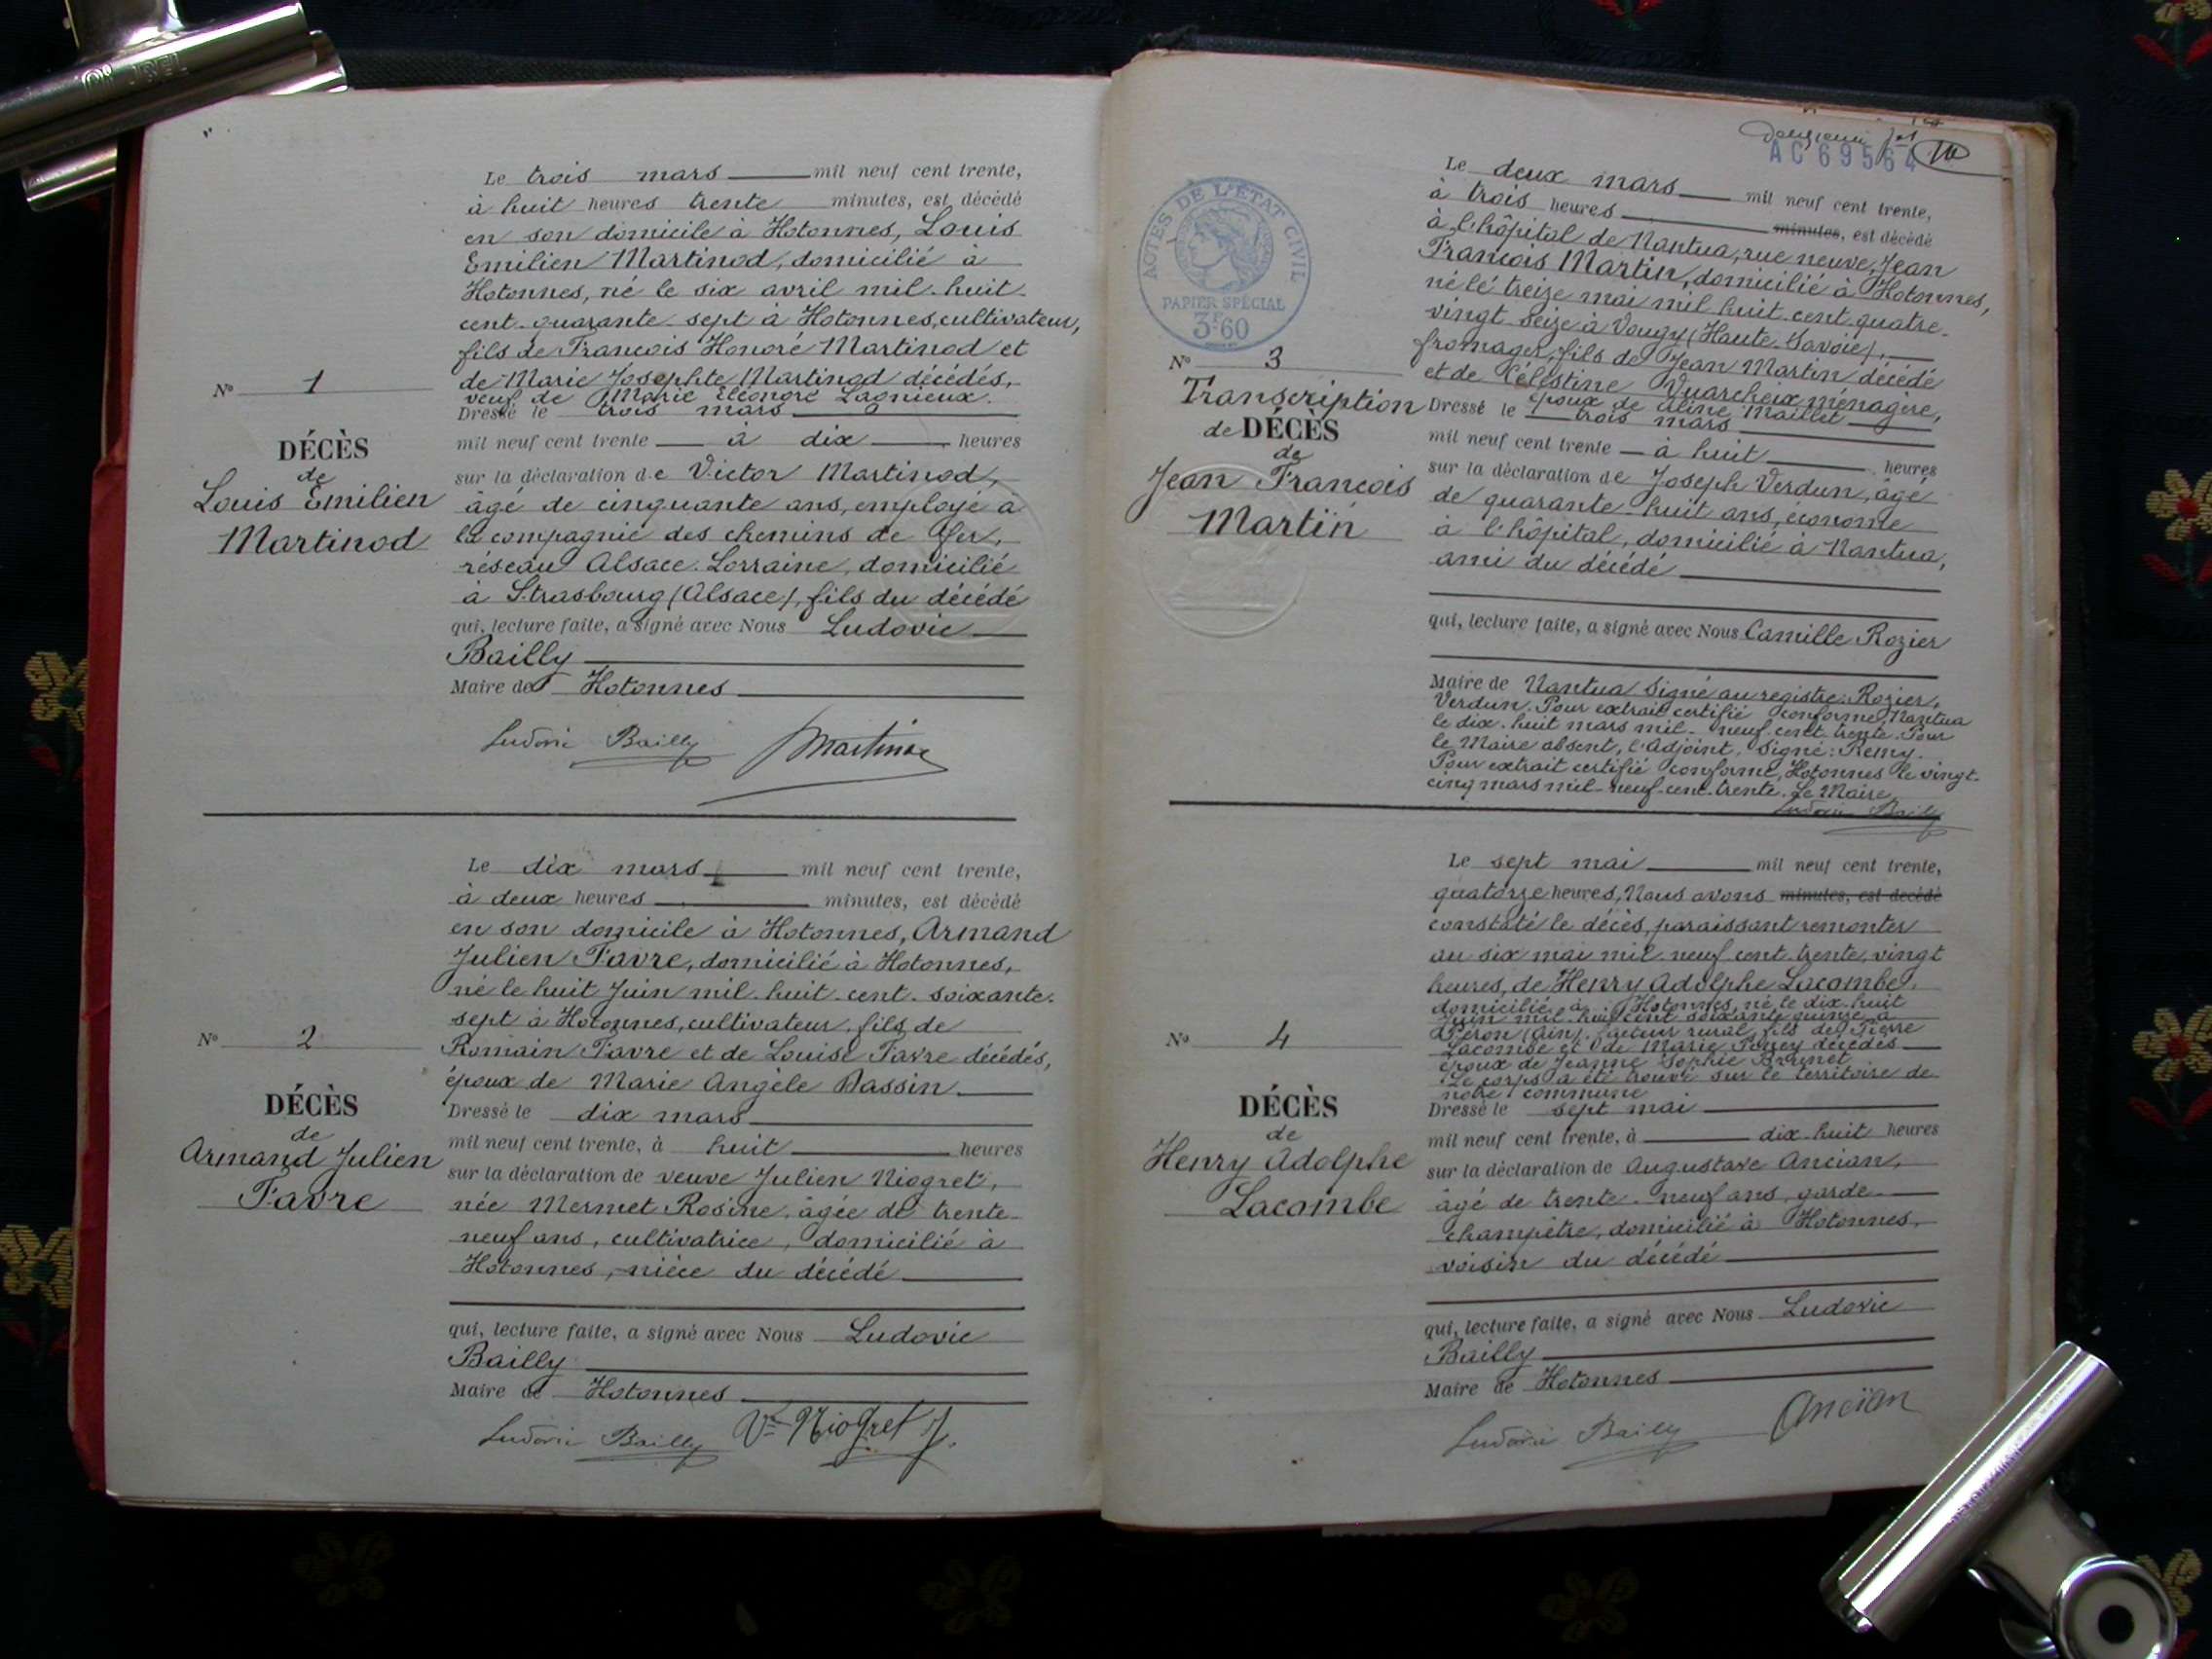 Le trois mars mil neuf cent trente,
à huit heures trente minutes, est décédé
en son domicile à Hotonnes, Louis
Emilien Martinod, domicilié à
Hotonnes, né le six avril mil-huit-
cent-quarante-sept à Hotonnes, cultivateur,
fils de François Honoré Martinod et
de Marie Josephte Martinod décédés,
veuf de Marie Eléonore Lagnieux.
N° 1
DÉCÈS
de
Louis Emilien
Martinod
Dressé le trois mars
mil neuf cent trente à dix heures
sur la déclaration de Victor Martinod,
âgé de cinquante ans, employé à
la compagnie des chemins de fer,
réseau Alsace-Lorraine, domicilié
à Strasbourg (Alsace), fils du décédé
qui, lecture faite, a signé avec Nous Ludovic
Bailly
Maire de Hotonnes
Ludovic Bailly Martinod
Le dix mars mil neuf cent trente,
à deux heures minutes, est décédé
en son domicile à Hotonnes, Armand
Julien Favre, domicilié à Hotonnes,
né le huit Juin mil-huit-cent-soixante-
sept à Hotonnes, cultivateur, fils de
Romain Favre et de Louise Favre décédés,
époux de Marie Angèle Dassin
N° 2
DÉCÈS
de
Armand Julien
Favre
Dressé le dix mars
mil neuf cent trente, à huit heures
sur la déclaration de veuve Julien Niogret,
née Mermet Rosine, âgée de trente-
neuf ans, cultivatrice, domicilié à
Hotonnes, nièce du décédé
qui, lecture faite, a signé avec Nous Ludovic
Bailly
Maire de Hotonnes
Ludovic Bailly Vve Niogret J.
AC69564
ACTES DE L'ÉTAT CIVIL
PAPIER SPÉCIAL
3F60
Le deux mars mil neuf cent trente,
à trois heures minutes, est décédé
à l'hôpital de Nantua, rue neuve, Jean
François Martin, domicilié à Hotonnes,
né le treize mai mil huit cent quatre-
vingt seize à Vougy (Haute-Savoie),
fromager, fils de Jean Martin décédé
et de Célestine Vuarcheix ménagère,
époux de Aline Maillet
N° 3
Transcription
de DÉCÈS
de
Jean François
Martin
Dressé le trois mars
mil neuf cent trente à huit heures
sur la déclaration de Joseph Verdun, âgé
de quarante-huit ans, économe
à l'hôpital, domicilié à Nantua,
ami du décédé
qui, lecture faite, a signé avec Nous Camille Rozier
Maire de Nantua Signé au registre: Rozier,
Verdun. Pour extrait certifié conforme, Nantua
le dix-huit mars mil-neuf-cent-trente. Pour
le Maire absent, l'Adjoint, Signé: Remy.
Pour extrait certifié conforme, Hotonnes le vingt-
cinq mars mil-neuf-cent-trente. Le Maire
Ludovic Bailly
Le sept mai mil neuf cent trente,
quatorze heures, Nous avons minutes, est décédé
constaté le décès, paraissant remonter
au six mai mil-neuf-cent-trente, vingt
heures, de Henry Adolphe Lacombe,
domicilié à Hotonnes, né le dix-huit
Juin mil-huit-cent soixante quinze à
Péron (Ain), facteur rural, fils de Pierre
Lacombe et de Marie Poncy décédés
époux de Jeanne Sophie Brunet
Le corps a été trouvé sur le territoire de
notre commune
N° 4
DÉCÈS
de
Henry Adolphe
Lacombe
Dressé le sept mai
mil neuf cent trente, à dix-huit heures
sur la déclaration de Augustave Ancian,
âgé de trente-neuf ans, garde
champêtre, domicilié à Hotonnes,
voisin du décédé
qui, lecture faite, a signé avec Nous Ludovic
Bailly
Maire de Hotonnes
Ludovic Bailly Ancian